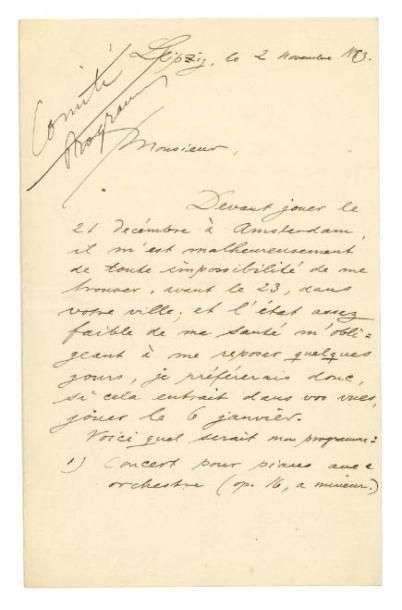 Leipzig, le 2 Novembre 1883.
Comité
Program
Monsieur,
Devant jouer le
21 decémbre à Amsterdam,
il m'est malheureusement
de toute impossibilité de me
trouver, avant le 23, dans
votre ville; et l'état assez
faible de ma santé m'obli=
geant à me reposer quelques
jours, je préférerais donc,
si cela entrait dans vos vues,
jouer le 6 janvier.
Voici quel serait mon programme:
1) Concert pour piano avec
orchestre (op. 16, a mineur.)